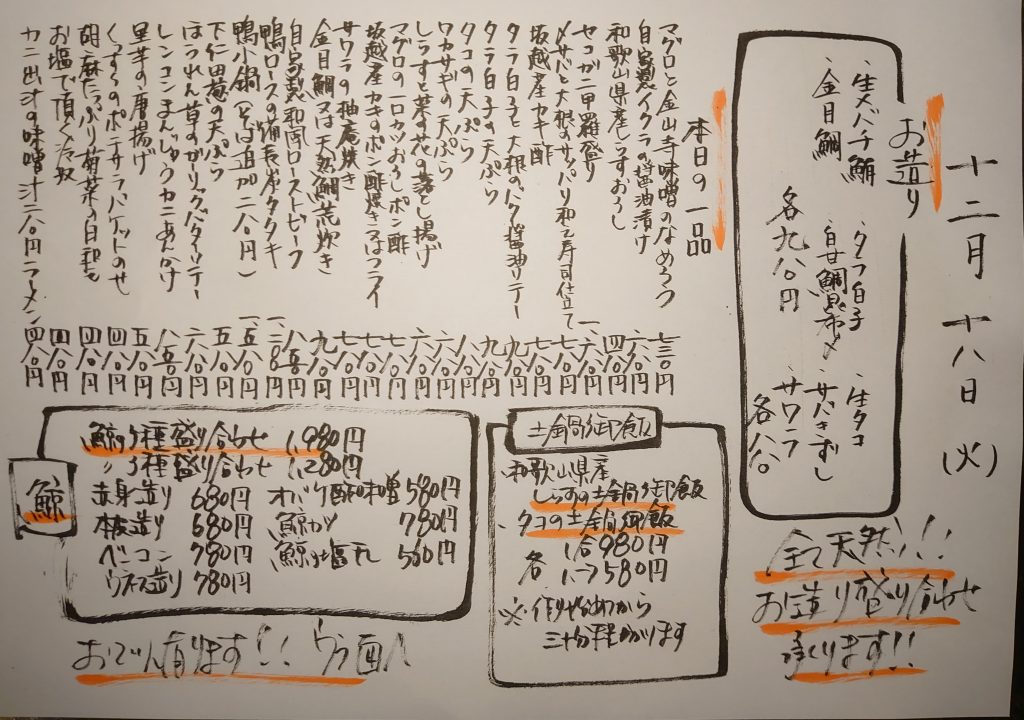 十二月十八日(火)
お造り
・生メバチ鮪
・金目鯛
・タラ白子
・白甘鯛昆布〆
・生タコ
・サバきずし
・サワラ
各九八〇円
本日の一品
マグロと金山寺味噌のなめろう 七三〇円
自家製イクラの醤油漬け 六八〇円
和歌山県産しらすおろし 四八〇円
セコガニ甲羅盛り 一、六八〇円
〆サバと大根のサッパリ和え寿司仕立て 七八〇円
坂越産カキ酢 七八〇円
タラ白子と大根のバタ醤油ソテー 九八〇円
タラ白子の天ぷら 九八〇円
タコの天ぷら 八八〇円
ワカサギの天ぷら 六八〇円
しらすと菜の花の落とし揚げ 六八〇円
マグロの一口カツおろしポン酢 七八〇円
坂越産カキのポン酢焼き又はフライ 七八〇円
サワラの柚庵焼き 七八〇円
金目鯛又は天然鯛荒炊き 九八〇円
自家製和風ローストビーフ 八八〇円
鴨ロースの備長炭タタキ 一、二八〇円
鴨小鍋(そば追加二八〇円) 一、五八〇円
下仁田葱の天ぷら 五八〇円
ほうれん草のガーリックバターソテー 六八〇円
レンコンまんじゅうカニあんかけ 八八〇円
里芋の唐揚げ 五八〇円
くずし豆のポテサラバケットのせ 四八〇円
胡麻たっぷり菊菜の白和え 四八〇円
お塩で頂く冷奴 四八〇円
カニ出汁の味噌汁二八〇円ラーメン四八〇円
全て天然!!
お造り盛り合わせ
承ります!!
土鍋御飯
・和歌山県産
しらすの土鍋御飯
・タコの土鍋御飯
各 1合980円
1.5 1,580円
※作り始めてから
三十分程かかります
鯨
鯨の5種盛り合わせ 1,980円
〃3種盛り合わせ 1,280円
赤身造り 680円
本皮造り 680円
ベーコン 780円
ウネス造り 780円
オバケ酢味噌 580円
鯨カツ 780円
鯨の塩タレ 580円
おでん有ります!! ウラ面へ